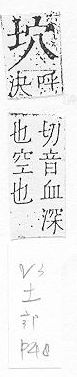 坹
呼
決
切音血深
也空也
土
部